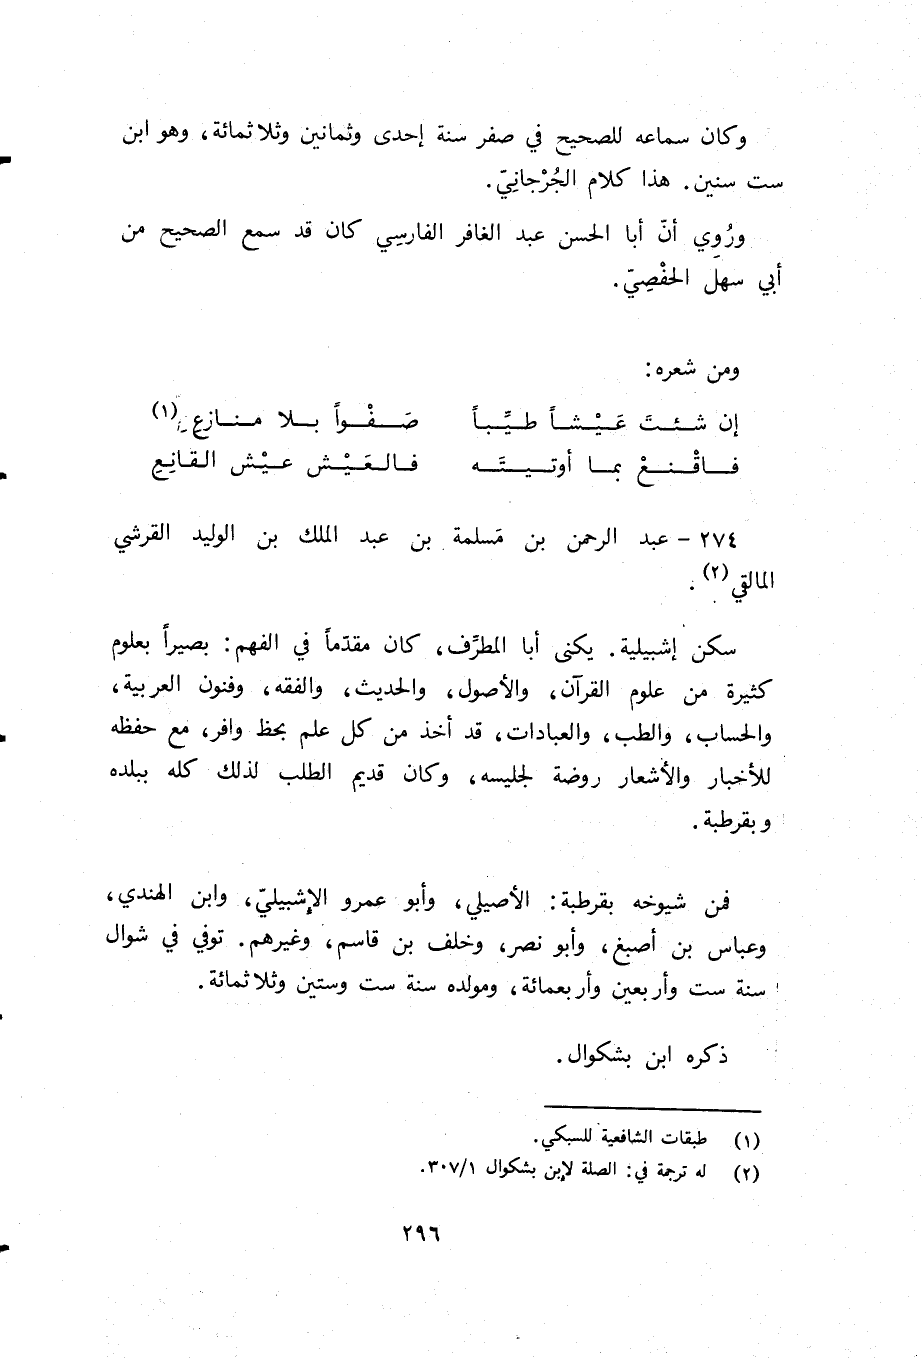 وكان سماعه للصحيح في صفر سنة إحدى وثمانين وثلاثمائة، وهو ابن
ست سنين. هذا كلام الجُرْجانِيّ.
ورُوِي أنّ أبا الحسن عبد الغافر الفارسِي كان قد سمع الصحيح من
أبي سهل الحفْصِيّ.
ومن شعره:
إن شـئـت عَيْـشـاً طـيِّـبـاً صَـفْـواً بـلا مـنـازِع (١)
فـاقْـنـعْ بما أوتـيـتَـه فـالـعَيْـش عـيْـش القـانِـع
٢٧٤ - عبد الرحمن بن مَسلمة بن عبد الملك بن الوليد القرشي
المالقي (٢).
سكن إشبيلية. يكنى أبا المطرِّف، كان مقدّماً في الفهم: بصيراً بعلوم
كثيرة من علوم القرآن، والأصول، والحديث، والفقه، وفنون العربية،
والحساب، والطب، والعبادات، قد أخذ من كل علم بحظ وافر، مع حفظه
للأخبار والأشعار روضة لجليسه، وكان قديم الطلب لذلك كله ببلده
وبقرطبة.
فمن شيوخه بقرطبة: الأصيلي، وأبو عمرو الإشبيليّ، وابن الهندي،
وعباس بن أصبغ، وأبو نصر، وخلف بن قاسم، وغيرهم. توفي في شوال
سنة ست وأربعين وأربعمائة، ومولده سنة ست وستين وثلاثمائة.
ذكره ابن بشكوال.
(١) طبقات الشافعية للسبكي.
(٢) له ترجمة في: الصلة لإبن بشكوال ٣٠٧/١.
٢٩٦